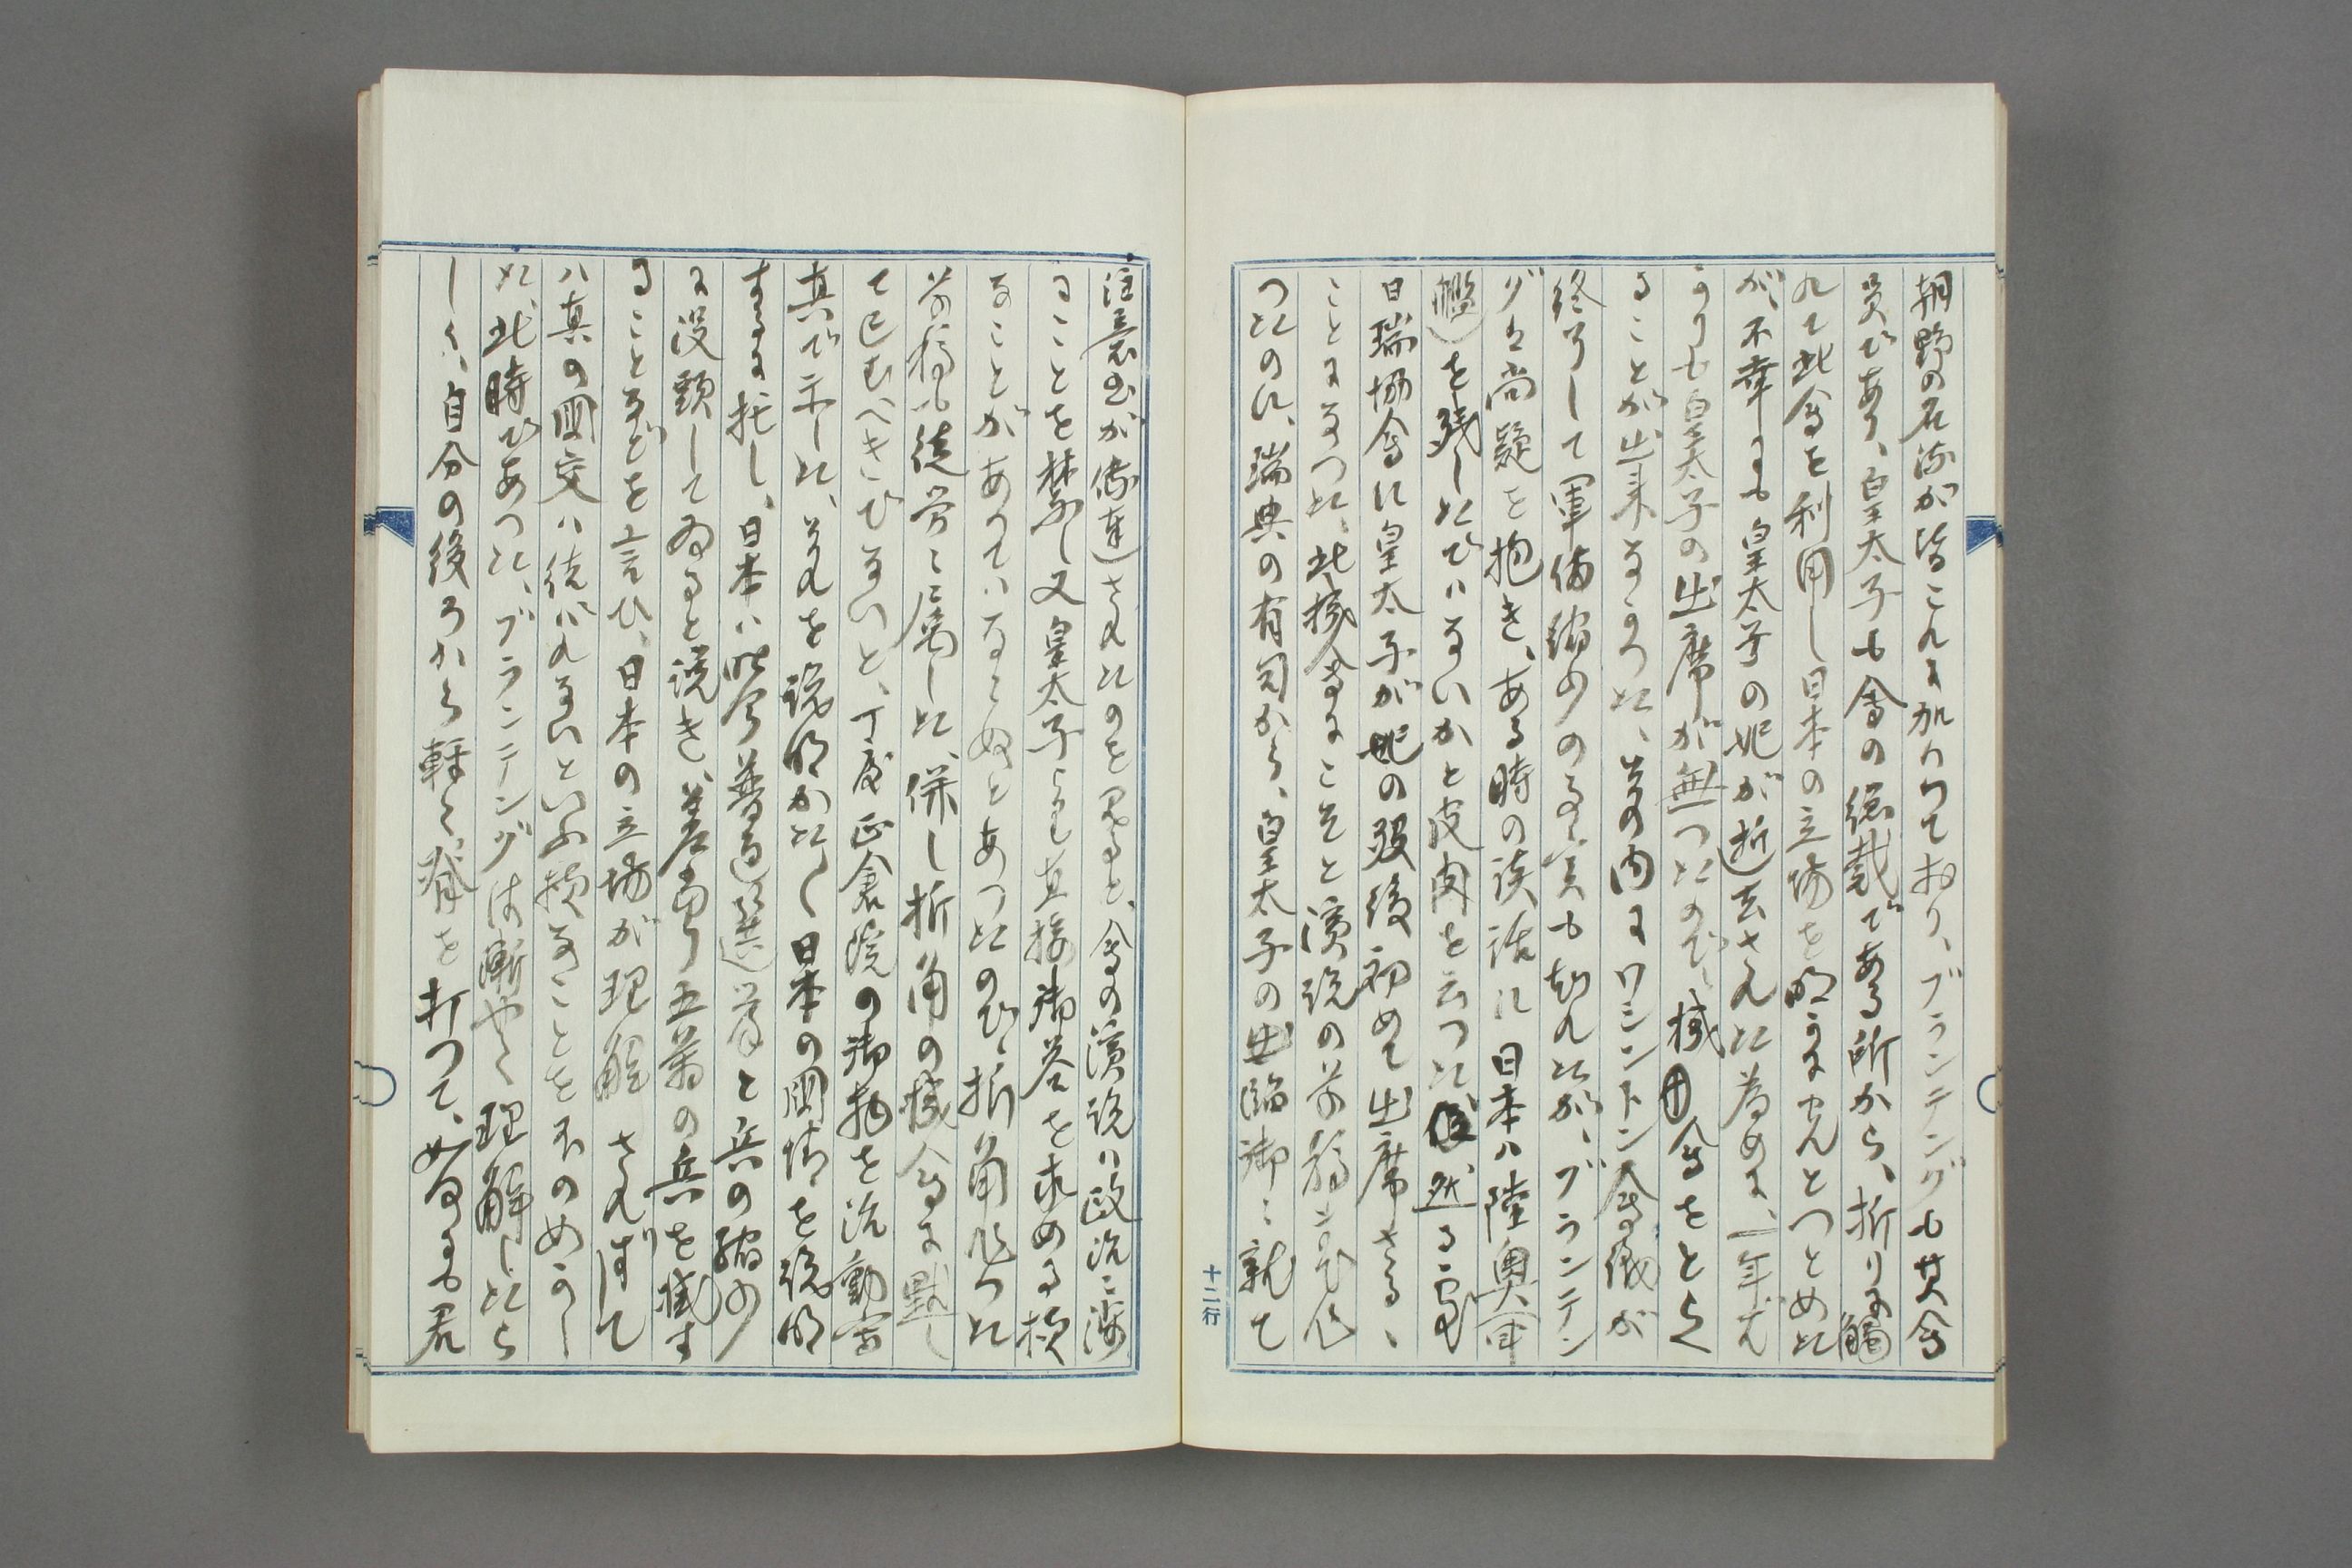 朝野の名流が皆これに加わつており、ブランテングも其会
員であり、皇太子も会の総裁である所から、折りに触
れて此会を利用し日本の立場を明かにせんとつとめた
が、不幸にも皇太子の妃が逝去された為めに、一年ば
かりも皇太子の出席が無つたので、機会をとらへ
ることが出来なかつた、其の内にワシントン会議が
終了して軍備縮少の事実も知れたが、ブランテン
グは尚疑を抱き、ある時の談話に日本ハ陸奥(軍
艦)を残したでハないかと皮肉を云つた、然る処
日瑞協会に皇太子が妃の歿後初めて出席さる、
ことになつた、此機会にこそと演説の草稿まで作
つたのに、瑞典の有司から、皇太子の出臨御に就て
注意書が傳達されたのを見ると、会の演説ハ政治に渉
ることを禁じ又皇太子よりも直接御答を求める様
なことがあつてハならぬとあつたので、折角作つた
草稿も徒労に属した、併し折角の機会に黙し
て已むべきでないと、丁度正倉院の御物を活動写
真で示した、それを説明かたく日本の国情を説明
するに托し、日本ハ昨今普通選挙と兵の縮少
に没頭してゐると説き、差当り五萬の兵を減す
ることなどを言ひ、日本の立場が理解されずして
ハ真の国交ハ続かれないといふ様なことをほのめかし
た、此時であつた、ブランテングは漸やく理解したら
しく、自分の後ろから軽く脊を打つて、如何にも君
十二行